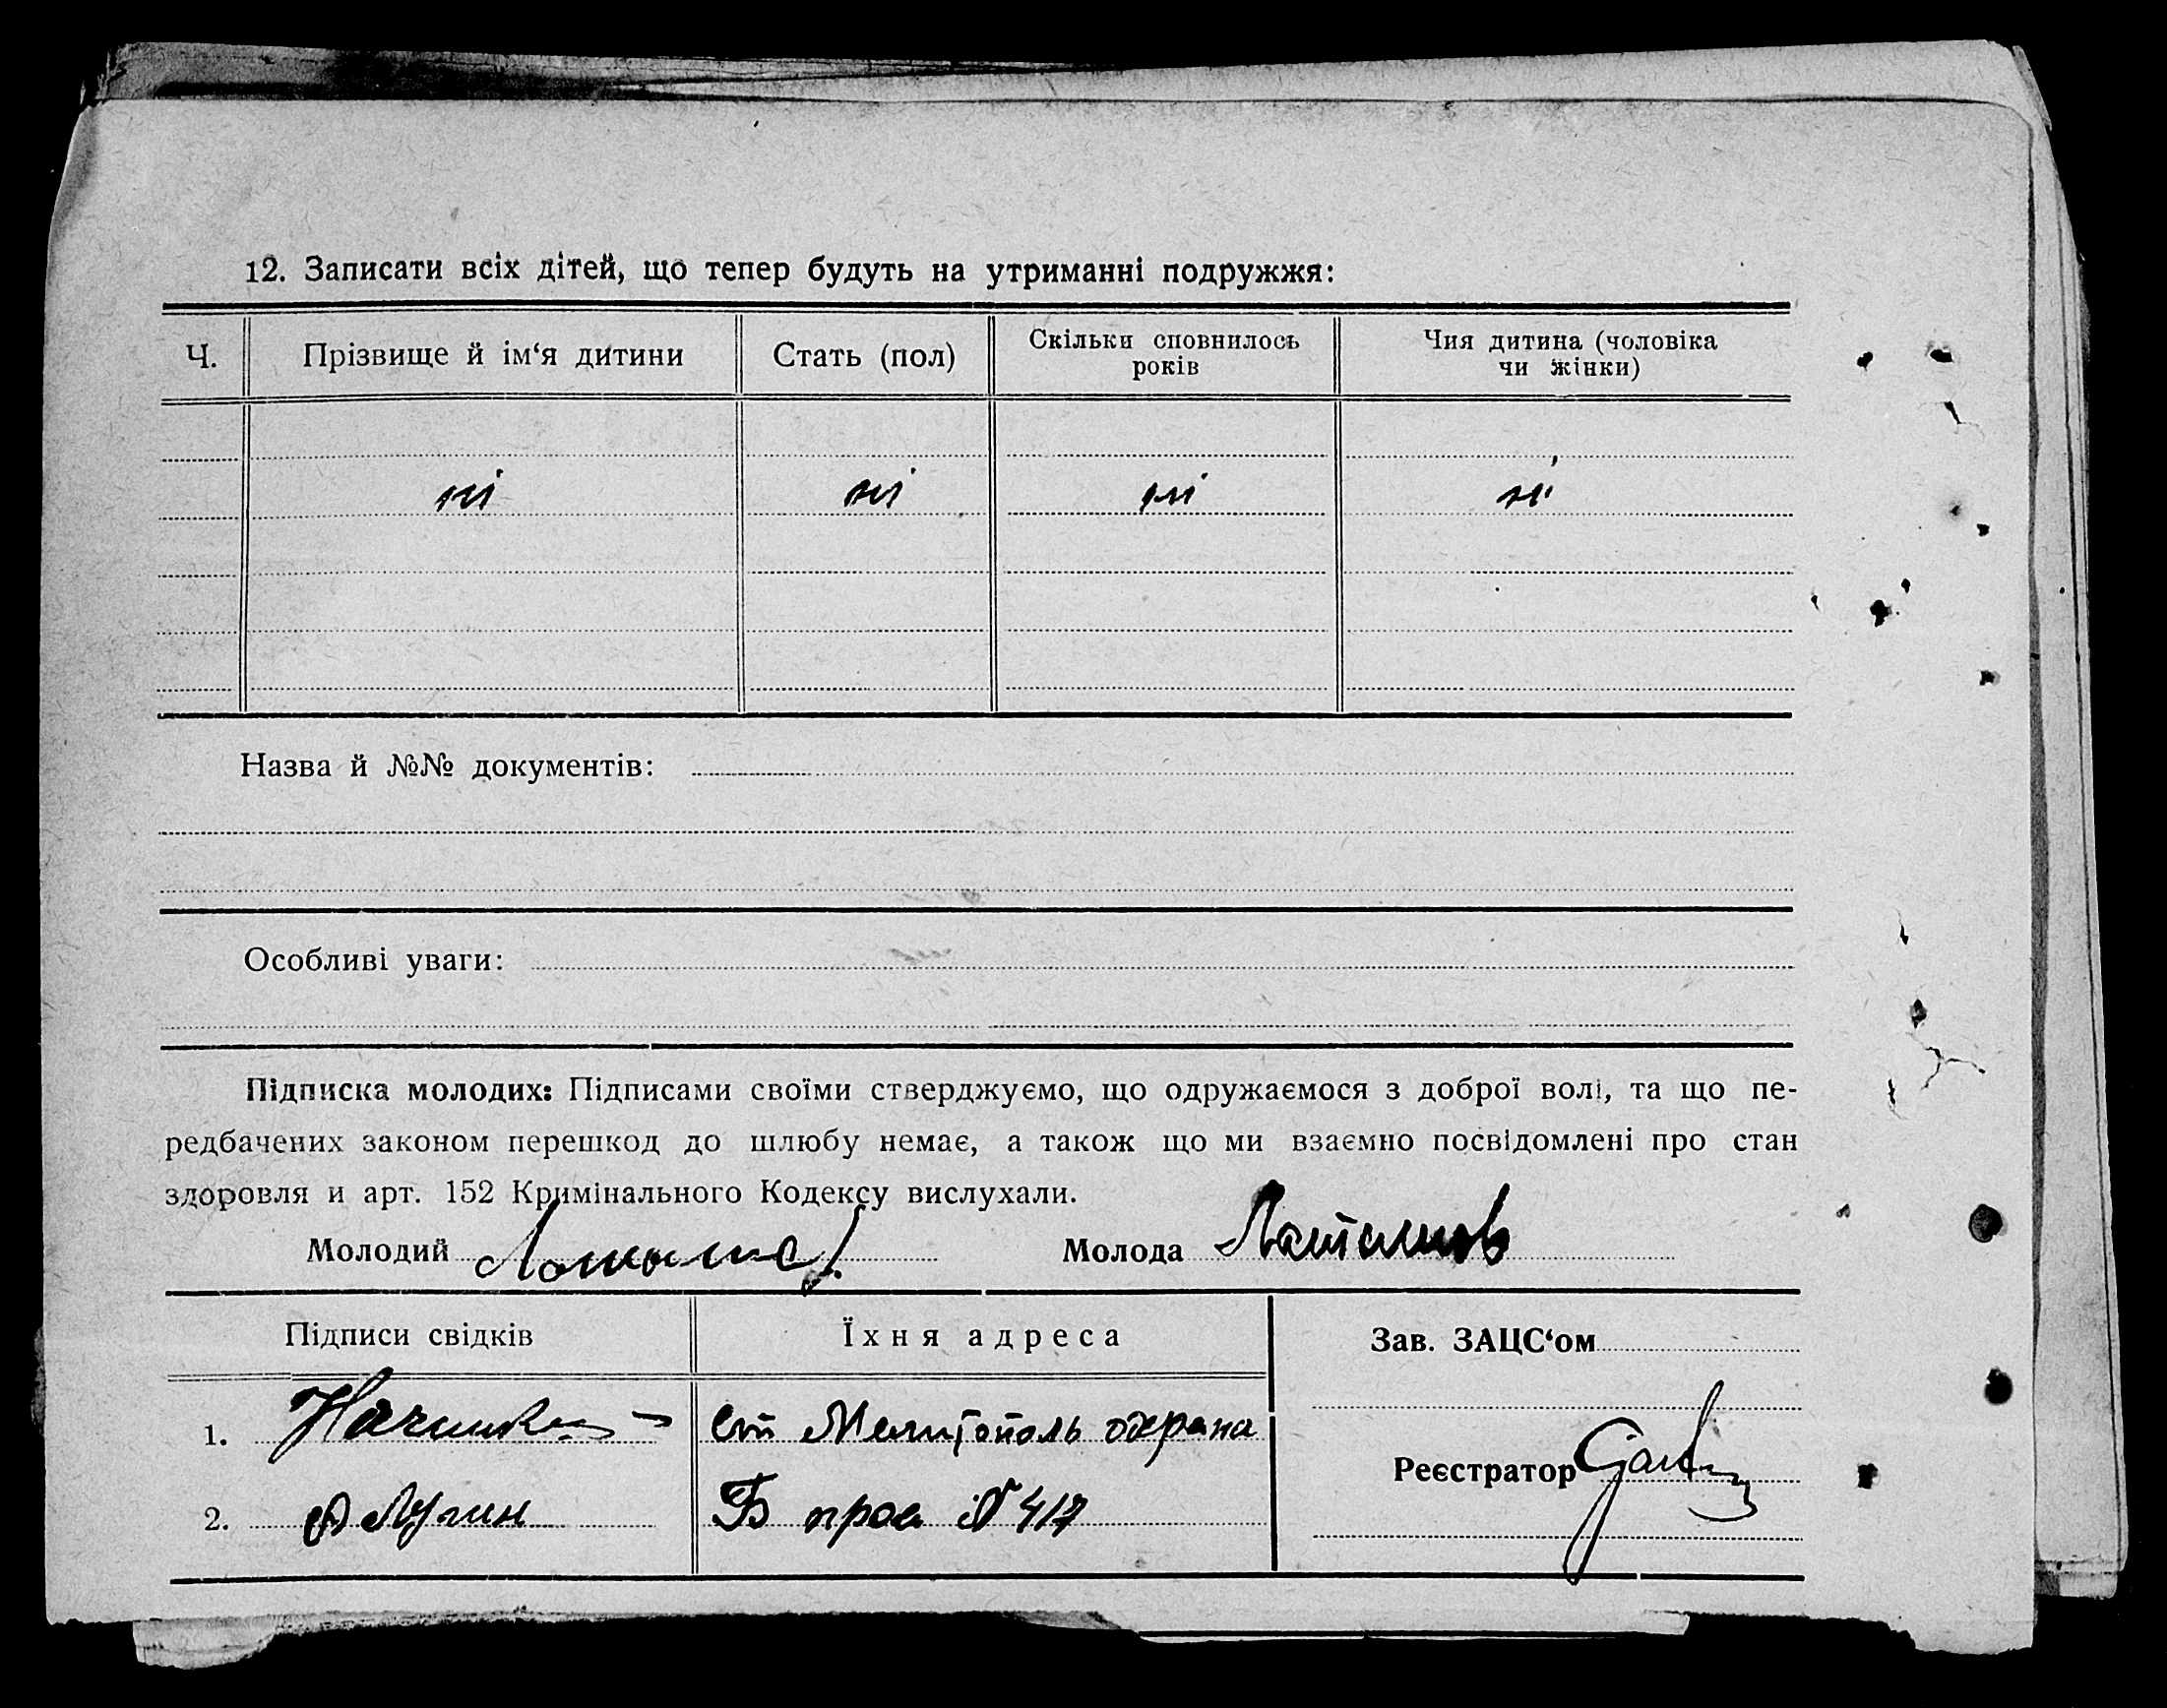 12. Записати всіх дітей, що тепер будуть на утриманні подружжя:
Ч.
Прізвище й ім‘я дитини
Стать (пол)
Скільки сповнилось
років
Чия дитина (чоловіка
чи жінки)
ні ні ні ні
Назва й №№ документів:
Особливі уваги:
Підписка молодих: Підписами своїми стверджуємо, що одружаємося з доброї волі, та що пе-
редбачених законом перешкод до шлюбу немає, а також що ми взаємно посвідомлені про стан
здоровля и арт. 152 Кримінального Кодексу вислухали.
Молодий
Молода
Підписи свідків
Їхня адреса
Зав. ЗАЦС‘ом
1. ст Мелитополь охрана
Реєстратор
2. Б прос № 417